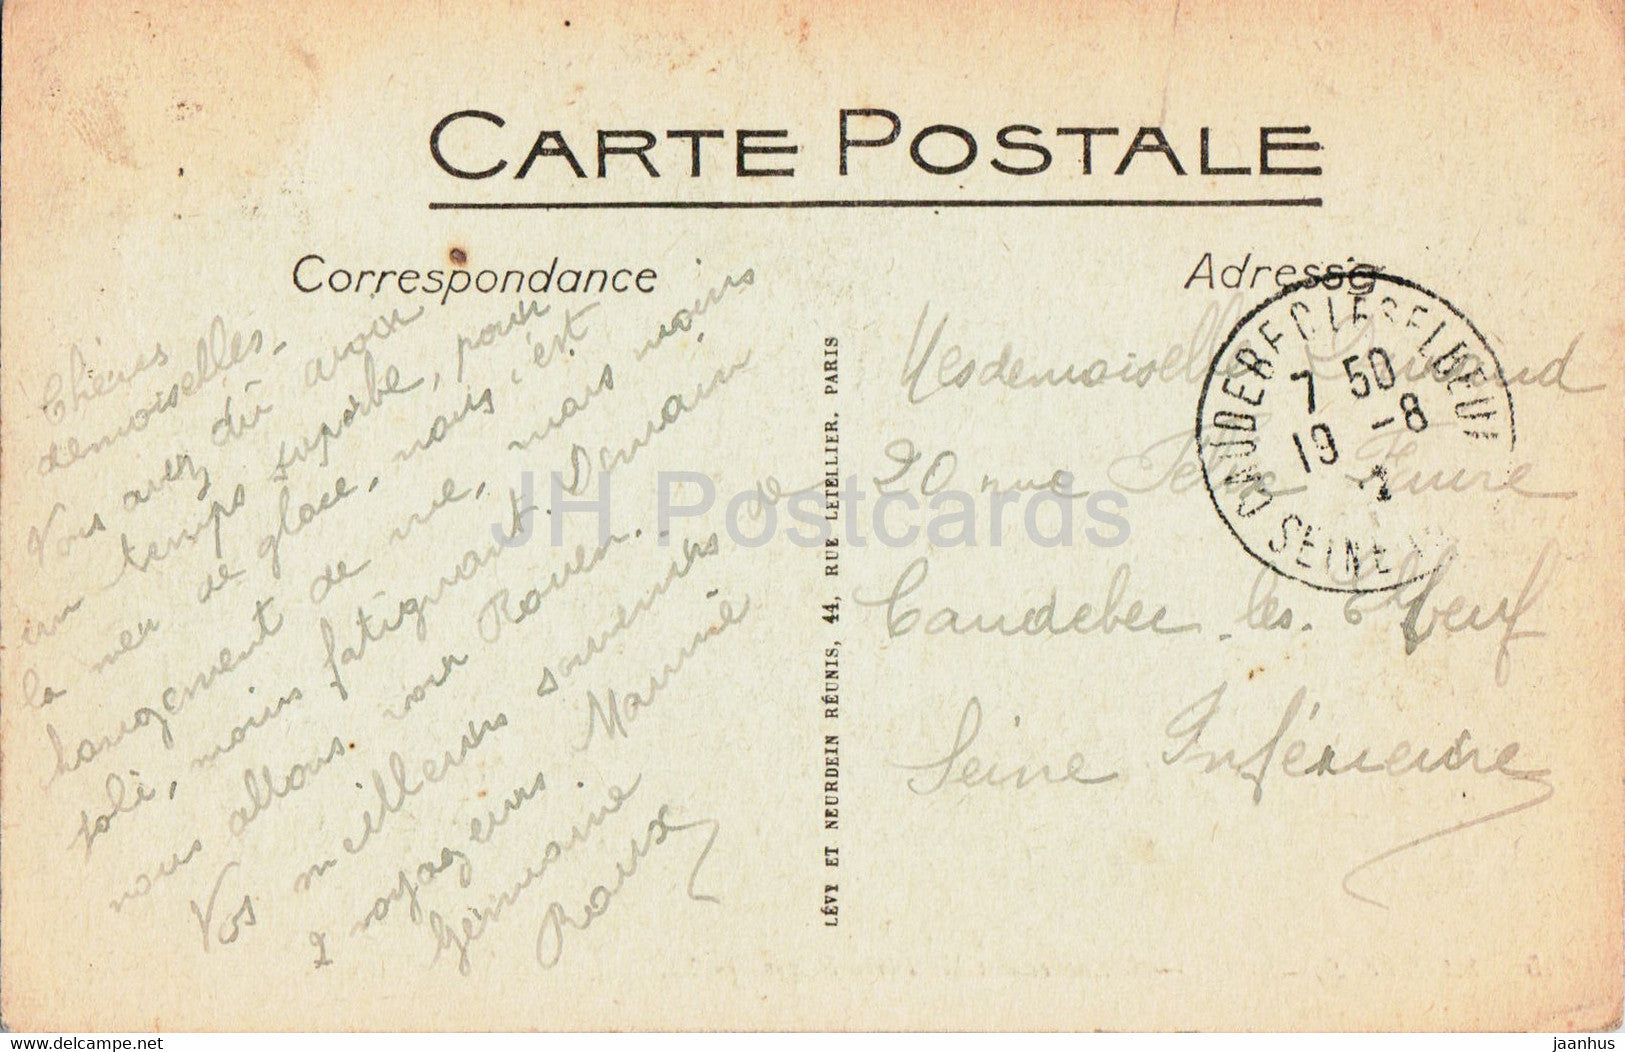 CARTE POSTALE
Correspondance
Adresse
Chères
demoiselles.
Vous avez dû avoir
un temps superbe, pour
la mer de glace, nous, c'est
changement de vue, mais moins
joli, moins fatiguant. Demain
nous allons voir Rouen.
Vos meilleurs souvenirs de
2 voyageurs. Mamie
Germaine
Roux
LÉVY ET NEURDEIN RÉUNIS, 44, RUE LETELLIER, PARIS
Mesdemoiselles Durand
20 rue Félix Faure
Caudebec-les-Elbeuf
Seine Inférieure
CAUDEBEC LES ELBEUF
7 50
-8
19
SEINE
JH Postcards
Delcampe.net
jaanhus